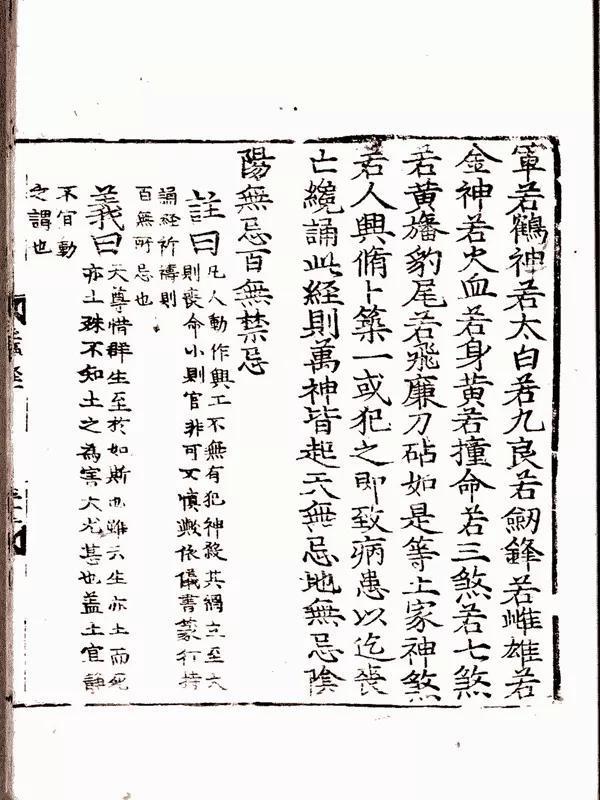 軍若鶴神若太白若九良若劒鋒若雌雄若
金神若火血若身黃若撞命若三煞若七煞
若黃旛豹尾若飛廉刀砧如是等土家神煞
若人興脩卜築一或犯之即致病患以迄喪
亡纔誦此経則萬神皆起天無忌地無忌陰
陽無忌百無禁忌
註曰
凡人動作興工不無有犯神殺其禍立至大
則喪命小則官非可不慎歟依儀書篆行持
誦経祈禱則
百無所忌也
義曰
天尊惜群生至於如斯也雖云生亦土而死
亦土殊不知土之為害大尤甚也盖土宜靜
不宜動
之謂也